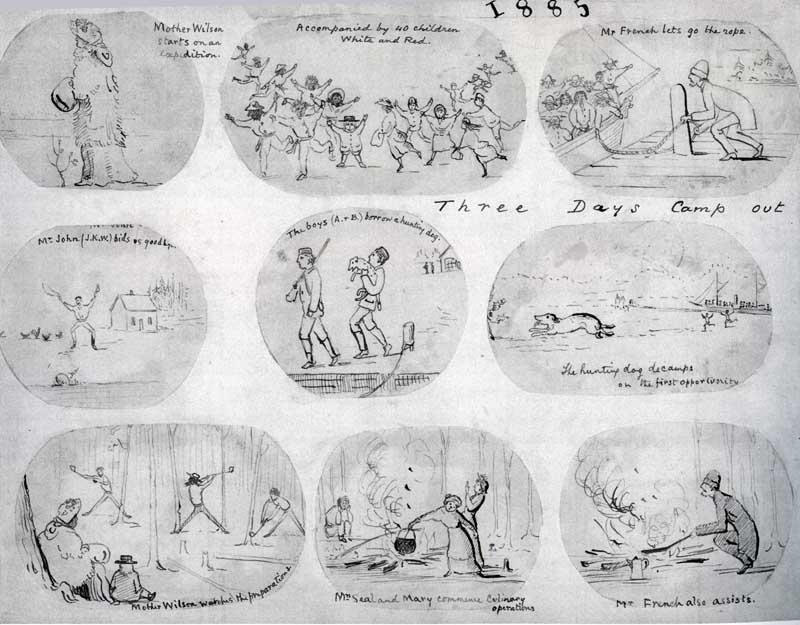 1885
Mother Wilson
starts on an
Expedition.
Accompanied by 40 children
White and Red.
Mr French lets go the rope.
Three Days Camp out
Mr. John (J.K.W.) bids us good bye.
The boys (A. & B.) borrow a hunting dog.
The hunting dog decamps
on the first opportunity
Mother Wilson watches the preparations
Mrs Seal and Mary commence Culinary
operations
Mr. French also assists.